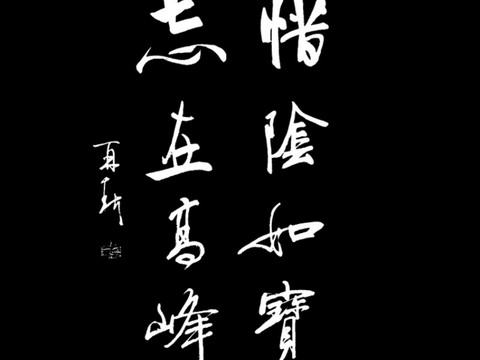 惜陰如寶
志在高峰